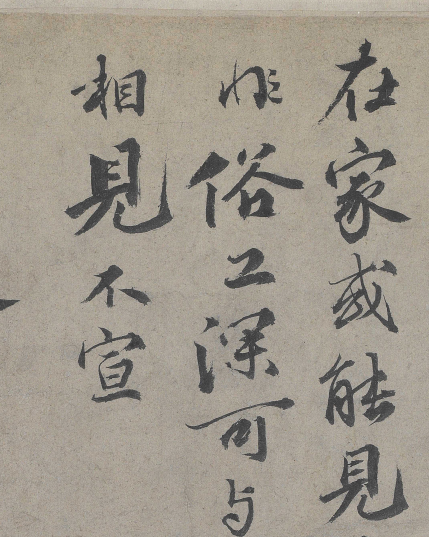 在家或能見
非俗工深可与
相見不宣